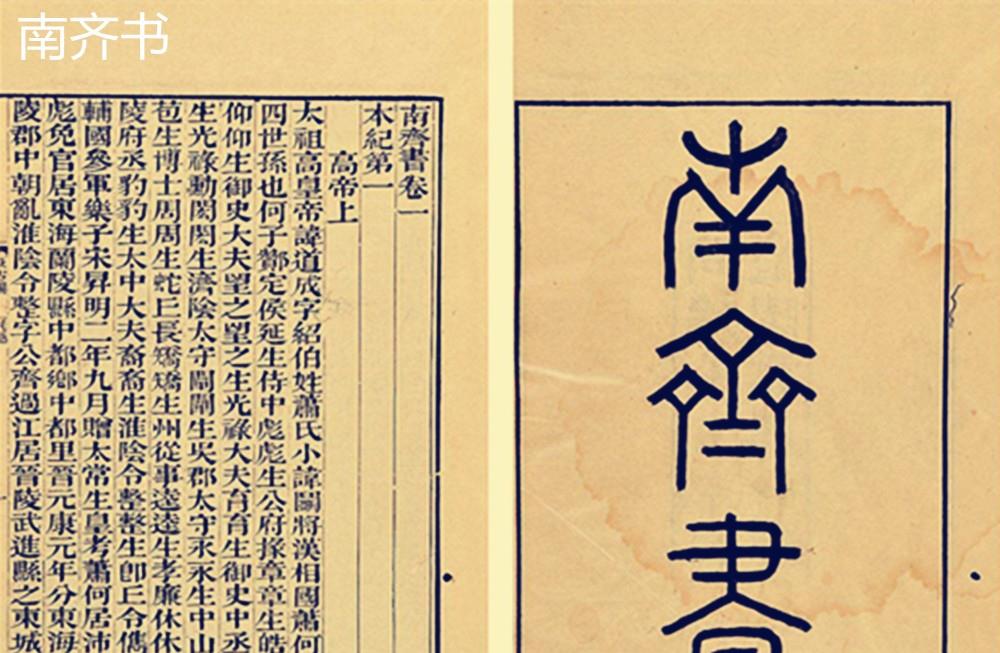 南齐书
南齊書
南齊書卷一
本紀第一
高帝上
太祖高皇帝諱道成字紹伯姓蕭氏小諱鬬將漢相國蕭何
四世孫也何子酇定侯延生侍中彪彪生公府掾章章生皓
仰仰生御史大夫望之望之生光祿大夫育育生御史中丞
生光祿勳閎閎生濟陰太守闡闡生吳郡太守永永生中山
苞生博士周周生蛇丘長矯矯生州從事逵逵生孝廉休休
陵府丞豹豹生太中大夫裔裔生淮陰令整整生卽丘令儁
輔國參軍樂子宋昇明二年九月贈太常生皇考蕭何居沛
彪免官居東海蘭陵縣中都鄉中都里晉元康元年分東海
陵郡中朝亂淮陰令整字公齊過江居晉陵武進縣之東城